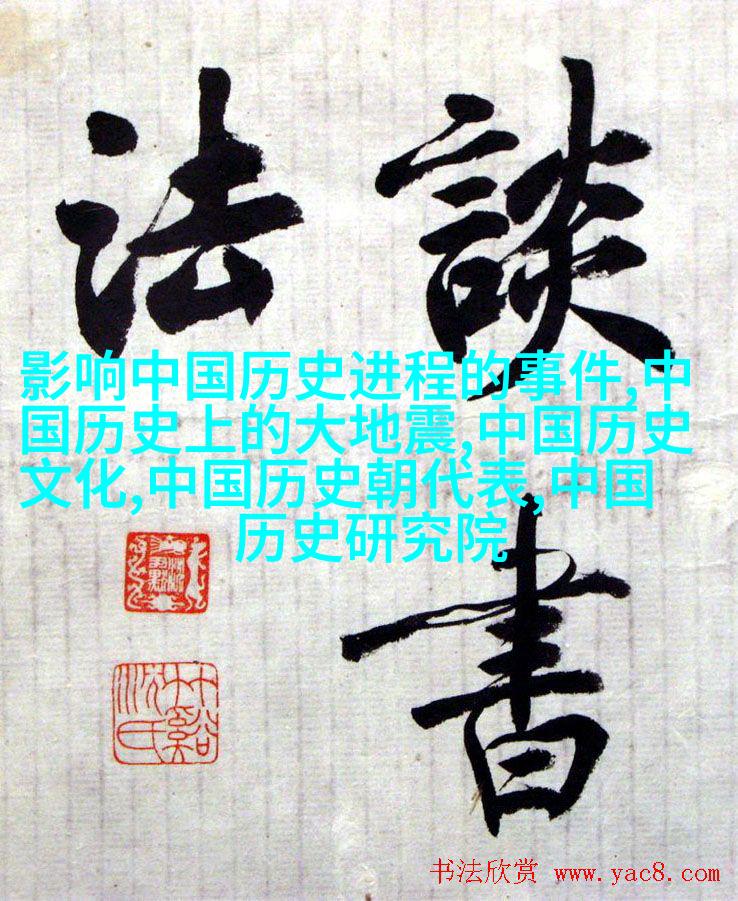 談書
法
影响中国历史进程的事件,中
国历史上的大地震,中国历史
文化,中国历史朝代表,中国
历史研究院
书法欣赏 www.yac8.com